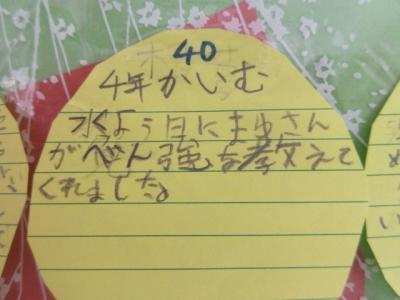 40
4年かいむ
水よう日にまゆさん
がべん強を教えて
くれました。